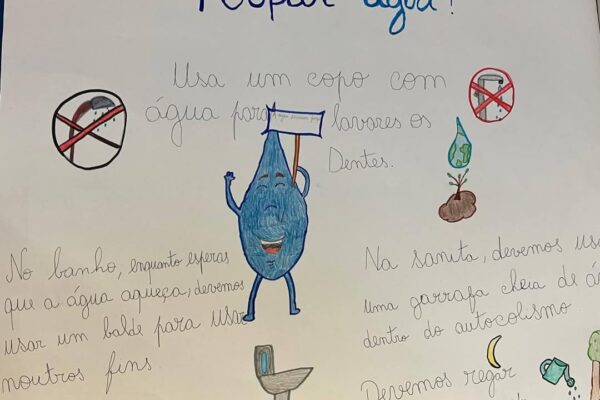 Poupar água!
Usa um copo com
água para lavares os
Dentes.
No banho, enquanto esperas
que a água aqueça, devemos
usar um balde para usar
noutros fins
Na sanita, devemos usa
uma garrafa cheia de á
dentro do autocolismo
Devemos regar